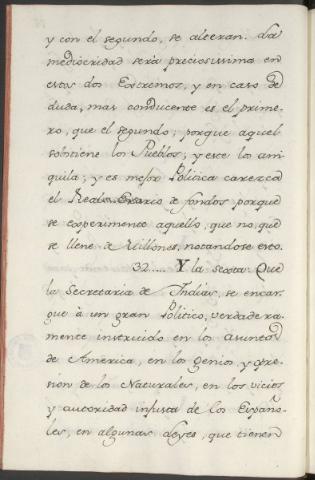 y con el segundo, se alteran. La
mediocridad será preciosissima en
estos dos Extremos, y en caso de
duda, mas conducente es el prime-
ro, que el segundo; porque aquel
sobstiene los Pueblos, y este los ani
quila; y es mejor Politica carezca
el Real Erario de fondos porque
se experimente aquello, que no, que
se llene de Millones, notandose esto.
32..... Y la sexta: Que
la Secretaria de Indias, se encar-
gue à un gran Politico, verdadera-
mente instruido en los asuntos
de America, en los genios y opre-
sion de los Naturales, en los vicios
y autoridad injusta de los Españo-
les, en algunas Leyes, que tienen